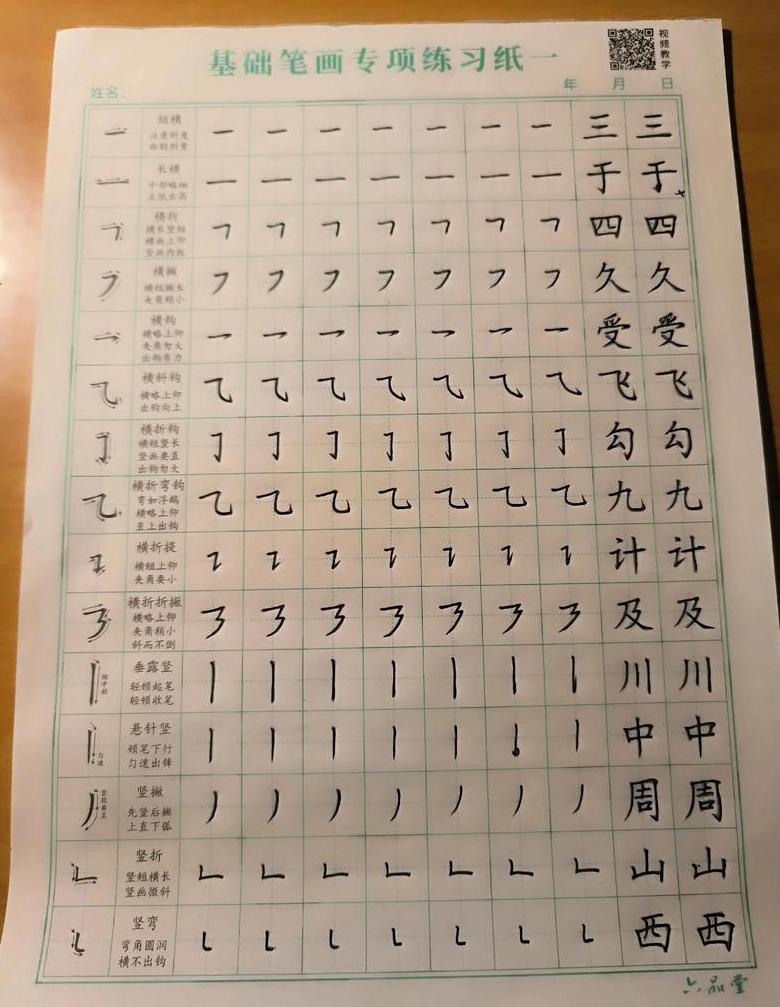 基础笔画专项练习纸一
视频教学
姓名:
年 月 日
短横
注意斜度
由轻到重
三 三
长横
中部略细
左低右高
于 于
横折
横长竖短
横画上仰
竖画内敛
四 四
横撇
横短撇长
夹角稍小
久 久
横钩
横略上仰
夹角勿大
出钩有力
受 受
横斜钩
横略上仰
出钩向上
飞 飞
横折钩
横短竖长
竖画要直
出钩勿大
勾 勾
横折弯钩
弯如浮鹅
横略上仰
直上出钩
九 九
横折提
横短上仰
夹角要小
计 计
横折折撇
横略上仰
夹角稍小
斜而不倒
及 及
垂露竖
轻顿起笔
轻顿收笔
川 川
悬针竖
顿笔下行
匀速出锋
匀速
中 中
竖撇
先竖后撇
上直下弧
周 周
竖折
竖短横长
竖画微斜
山 山
竖弯
弯角圆润
横不出钩
西 西
六品堂